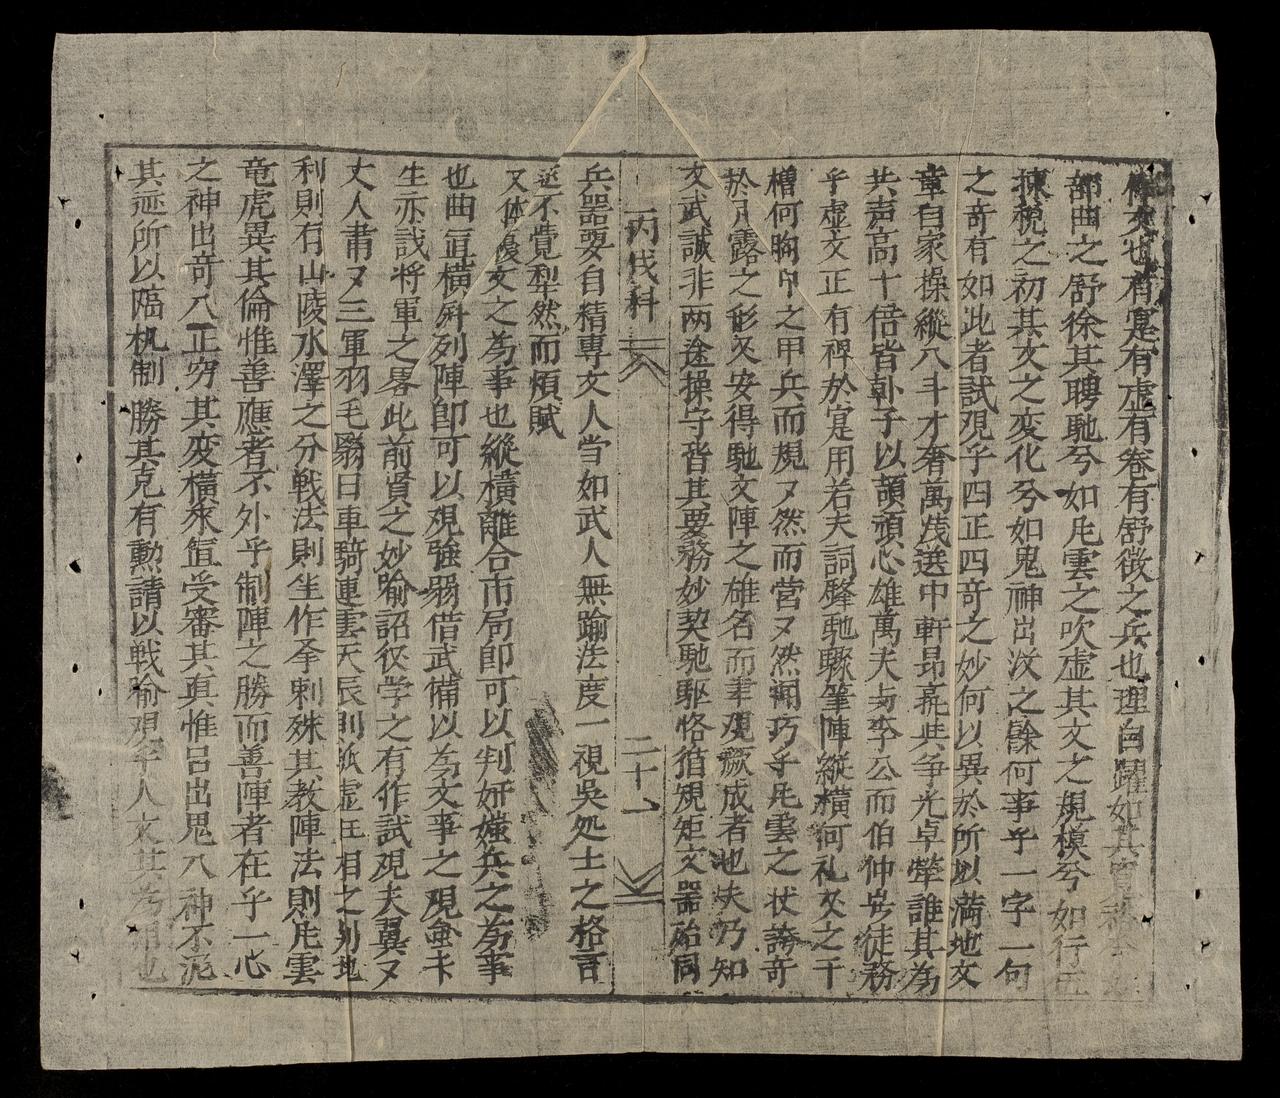 文也有寔有虚有卷有舒徴之兵也理自躍如其
部曲之舒徐其聘馳兮如凭雲之吹虚其文之規模兮如行五
棟税之初其文之変化兮如鬼神出汶之餘何事乎一字一句
之竒有如此者試覌子四正四竒之妙何以異於所以満地文
章自家操縱八斗才奢萬茂選中軒昂堯典争光卓犖誰其為
共声高十倍皆卦子以頡頏心雄萬夫与李公而伯仲豈徒務
乎虚文正有裨於寔用若夫詞鋒馳騁筆陣縱横何礼文之干
櫓何胸中之甲兵而規又然而営又然闻巧乎凭雲之状誇竒
於月露之形又安得馳文陣之雄名而聿覌厥成者也夫乃知
文武誠非两途操守皆其要務妙契馳駆恪循規矩文器殆同
丙戌科 二十一
兵器要自精専文人当如武人無踰法度一視吳処士之格言
莚不覺犁然而煩賦
又体優文之為事也縱横離合市局即可以判妍媸兵之為事
也曲直横斜列陣即可以覌強弱借武備以為文事之現金未
生亦哉将軍之畧此前賢之妙喻詔後学之有作試覌夫翼又
丈人肅又三軍羽毛翳日車騎連雲天辰則孤虚旺相之别地
利則有山陵水澤之分戦法則坐作争刺殊其教陣法則凭雲
竜虎異其倫惟善應者不外乎制陣之勝而善陣者在乎一心
之神也竒八正穷其変横來直受審其真惟吕出鬼八神不泥
其迹所以臨机制勝其克有勲請以戦喻覌乎人文其為用也